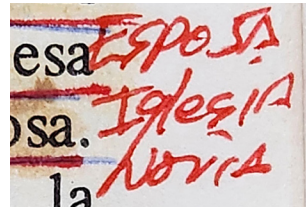 esa Esposa
osa. Iglesia
la Novia